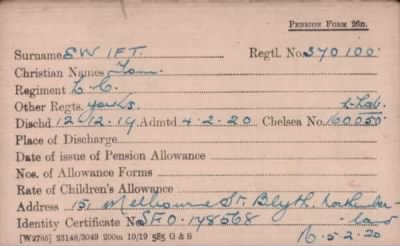 PENSION FORM 26D.
Surname SWIFT. Regtl. No. 370100
Christian Names Tom.
Regiment L. C.
Other Regts. Yorks. L-Lab.
Dischd 12.12.19. Admtd 4-2-20 Chelsea No.
Place of Discharge
Date of issue of Pension Allowance
Nos. of Allowance Forms
Rate of Children's Allowance
Address 15, Melbourne St. Blyth, Northumber-
Identity Certificate No. land
[W2785] 23148/3049 200m 10/19 585 G & S 16-5-2-20